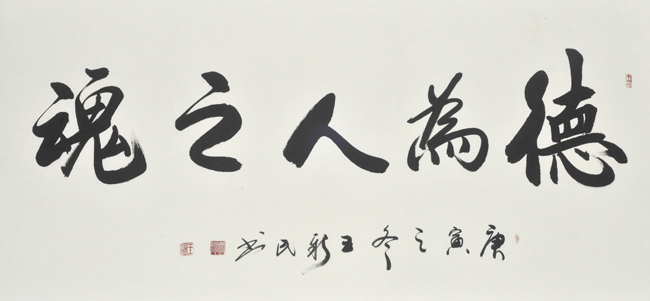 德為人之魂
庚寅之冬王新民书